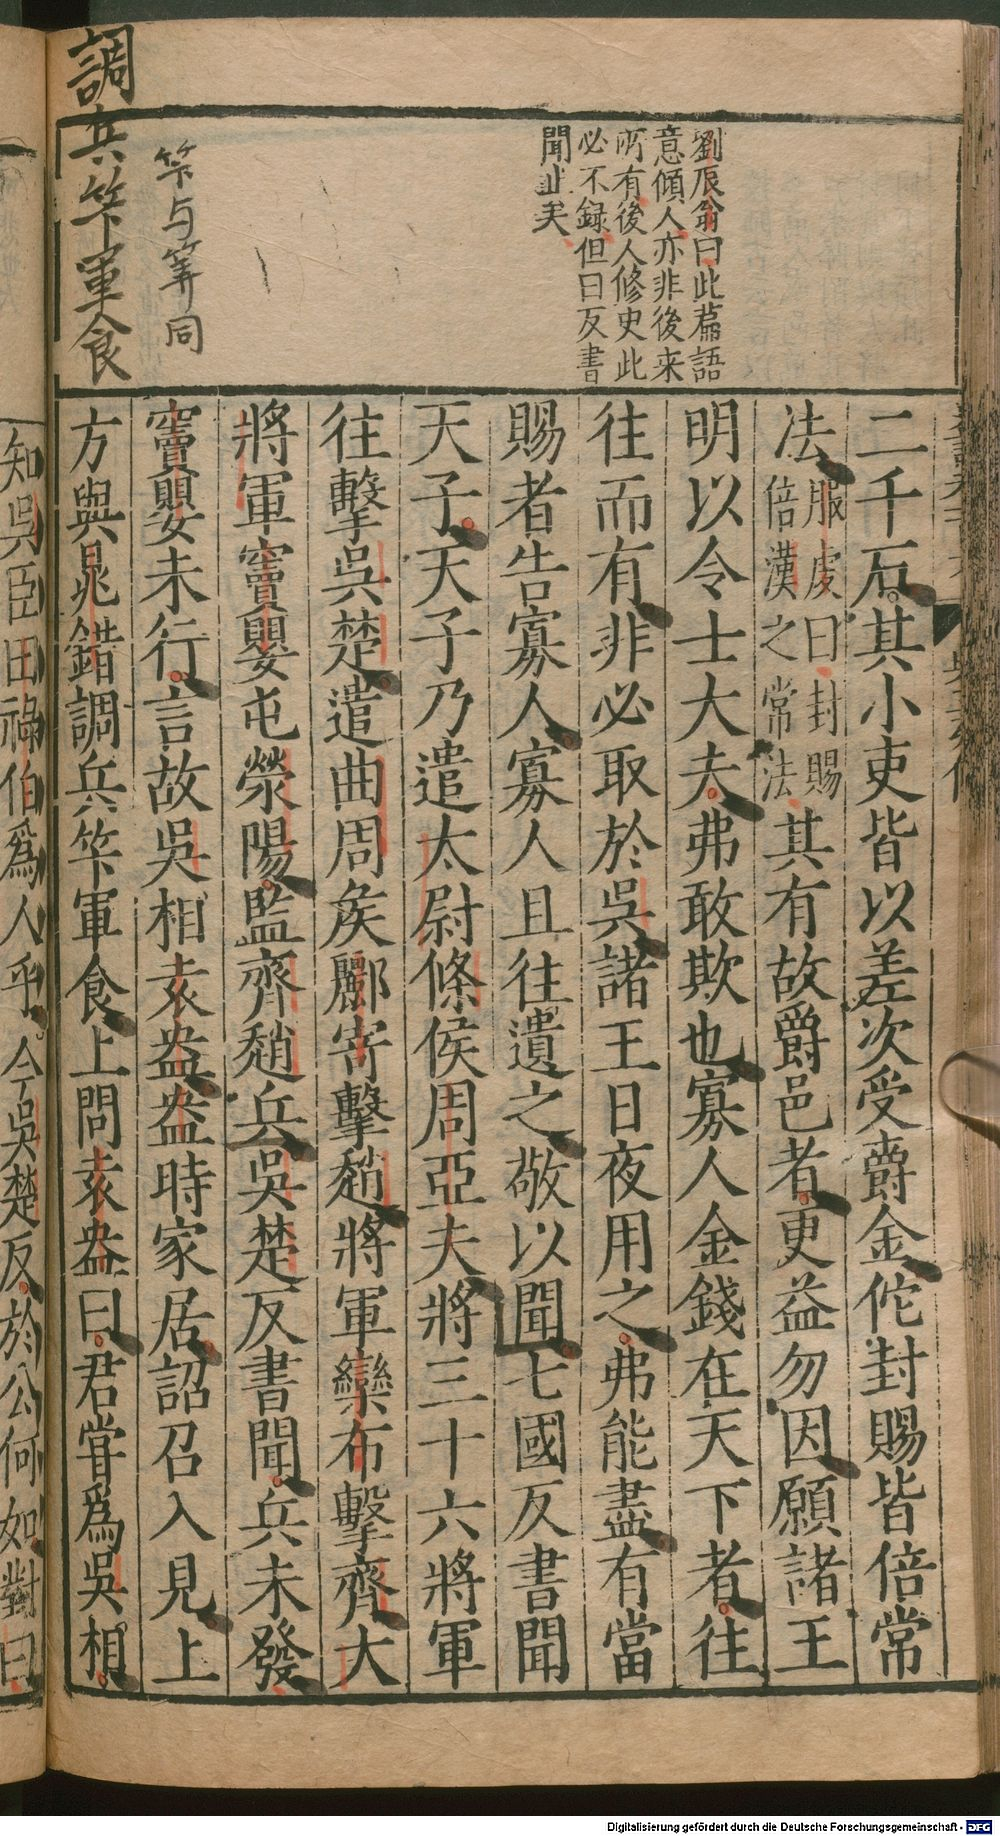 劉辰翁曰此篇語
意傾人亦非後来
所有後人修史此
必不録但曰反書
聞止矣
笇与筭同
調兵笇軍食
二千石其小吏皆以差次受爵金佗封賜皆倍常
法服虔曰封賜倍漢之常法其有故爵邑者更益勿因願諸王
明以令士大夫弗敢欺也寡人金錢在天下者往
往而有非必取於吳諸王日夜用之弗能盡有當
賜者告寡人寡人且往遺之敬以聞七國反書聞
天子天子乃遣太尉條侯周亞夫將三十六將軍
往擊吳楚遣曲周矦酈寄擊趙將軍欒布擊齊大
將軍竇嬰屯滎陽監齊趙兵吳楚反書聞兵未發
竇嬰未行言故吳相袁盎盎時家居詔召入見上
方與鼂錯調兵笇軍食上問袁盎曰君甞爲吳相
知吳臣田祿伯爲人乎今吳楚反於公何如對曰
Digitalisierung gefördert durch die Deutsche Forschungsgemeinschaft - DFG